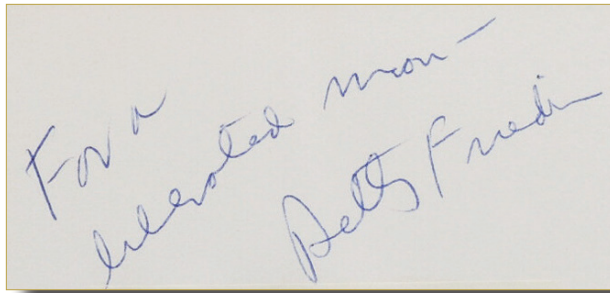 For a
liberated man —
Betty Friedan